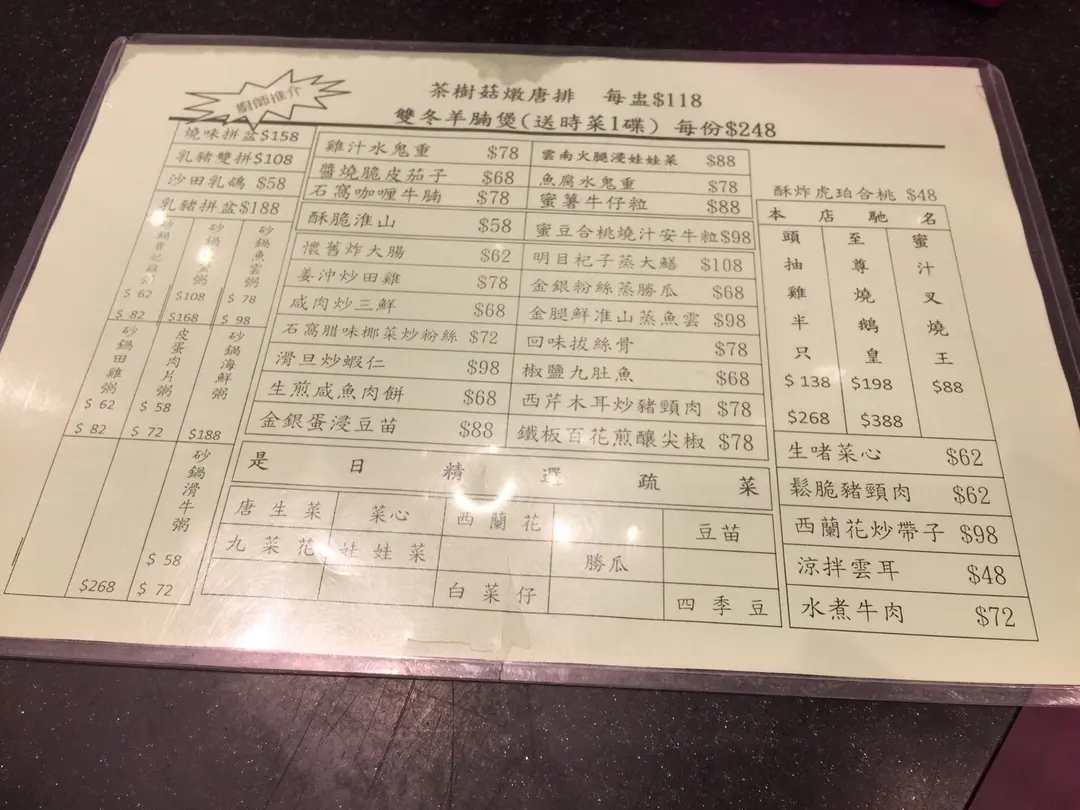 廚師推介
茶樹菇燉唐排 每盅$118
雙冬羊腩煲(送時菜1碟) 每份$248
燒味拼盆$158
乳豬雙拼$108
沙田乳鴿 $58
乳豬拼盆$188
$ 62
$ 82
粥
$108
$168
砂鍋魚雲粥
$ 78
$ 98
砂鍋田雞粥
$ 62
$ 82
皮蛋肉片粥
$ 58
$ 72
砂鍋海鮮粥
$188
$268
砂鍋滑牛粥
$ 58
$ 72
雞汁水鬼重 $78
醬燒脆皮茄子 $68
石窩咖喱牛腩 $78
酥脆淮山 $58
懷舊炸大腸 $62
姜沖炒田雞 $78
咸肉炒三鮮 $68
石窩腊味椰菜炒粉絲 $72
滑旦炒蝦仁 $98
生煎咸魚肉餅 $68
金銀蛋浸豆苗 $88
雲南火腿浸娃娃菜 $88
魚腐水鬼重 $78
蜜薯牛仔粒 $88
蜜豆合桃燒汁安牛粒$98
明目杞子蒸大鱔 $108
金銀粉絲蒸勝瓜 $68
金腿鮮淮山蒸魚雲 $98
回味拔絲骨 $78
椒鹽九肚魚 $68
西芹木耳炒豬頸肉 $78
鐵板百花煎釀尖椒 $78
酥炸虎珀合桃 $48
本店馳名
頭抽雞半只
$ 138
$268
至尊燒鵝皇
$198
$388
蜜汁叉燒王
$88
生啫菜心 $62
鬆脆豬頸肉 $62
西蘭花炒帶子 $98
涼拌雲耳 $48
水煮牛肉 $72
是日精選疏菜
唐生菜 菜心 西蘭花 豆苗
九菜花 娃娃菜 勝瓜
白菜仔 四季豆